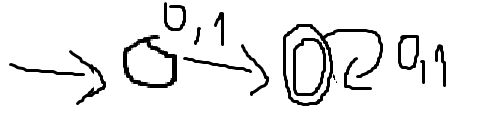 0,1
0,1